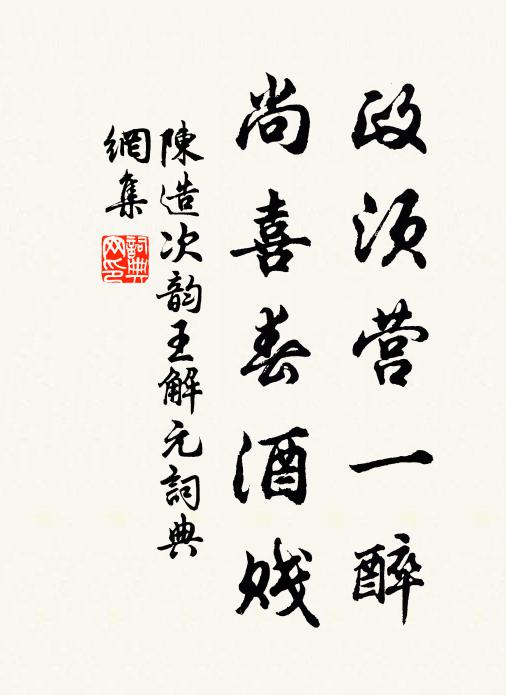 政须营一醉
尚喜春酒贱
陳造次韵王解元詞典
網集
詞典网印